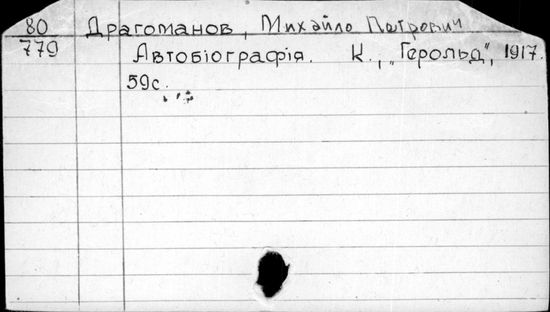 80 Драгоманов, Михайло Петрович
779 Автобіографія. К., „Герольд", 1917.
59с.